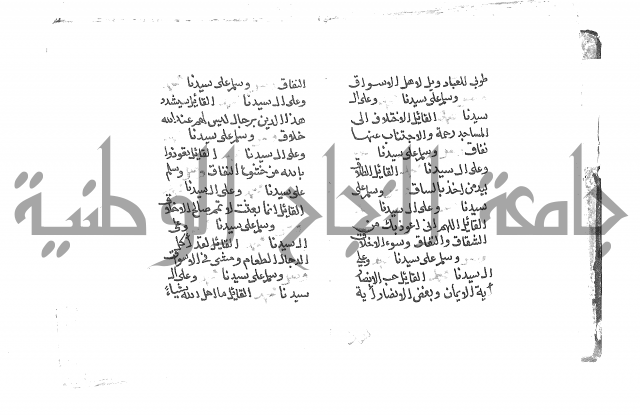 طوبى للعباد ويل لاهل الاسواق
وسلم على سيدنا وعلى ال
سيدنا القائل الاختلاف الى
المساجد رحمة والاجتناب عنها
نفاق وسلم على سيدنا
وعلى ال سيدنا القائل الطلاق
بيد من اخذ بالساق وسلم على
سيدنا وعلى ال سيدنا
القائل اللهم انى اعوذ بك من
الشقاق والنفاق وسوء الاخلاق
وسلم على سيدنا وعلى
ال سيدنا القائل حب الانصار
آية الايمان وبغض الانصار آية
النفاق وسلم على سيدنا
وعلى ال سيدنا القائل سيشدد
هذا الدين برجال ليس لهم عند الله
خلاق وسلم على سيدنا
وعلى ال سيدنا القائل تعوذوا
بالله من خشوع النفاق وسلم
على سيدنا وعلى ال سيدنا
القائل انما بعثت لاتمم صالح الاخلاق
وسلم على سيدنا وعلى
ال سيدنا القائل لقد اكل
الدجال الطعام ومشى في الاسواق
وسلم على سيدنا وعلى ال
سيدنا القائل ما اهل الله بشياء
جامعة النجاح الوطنية